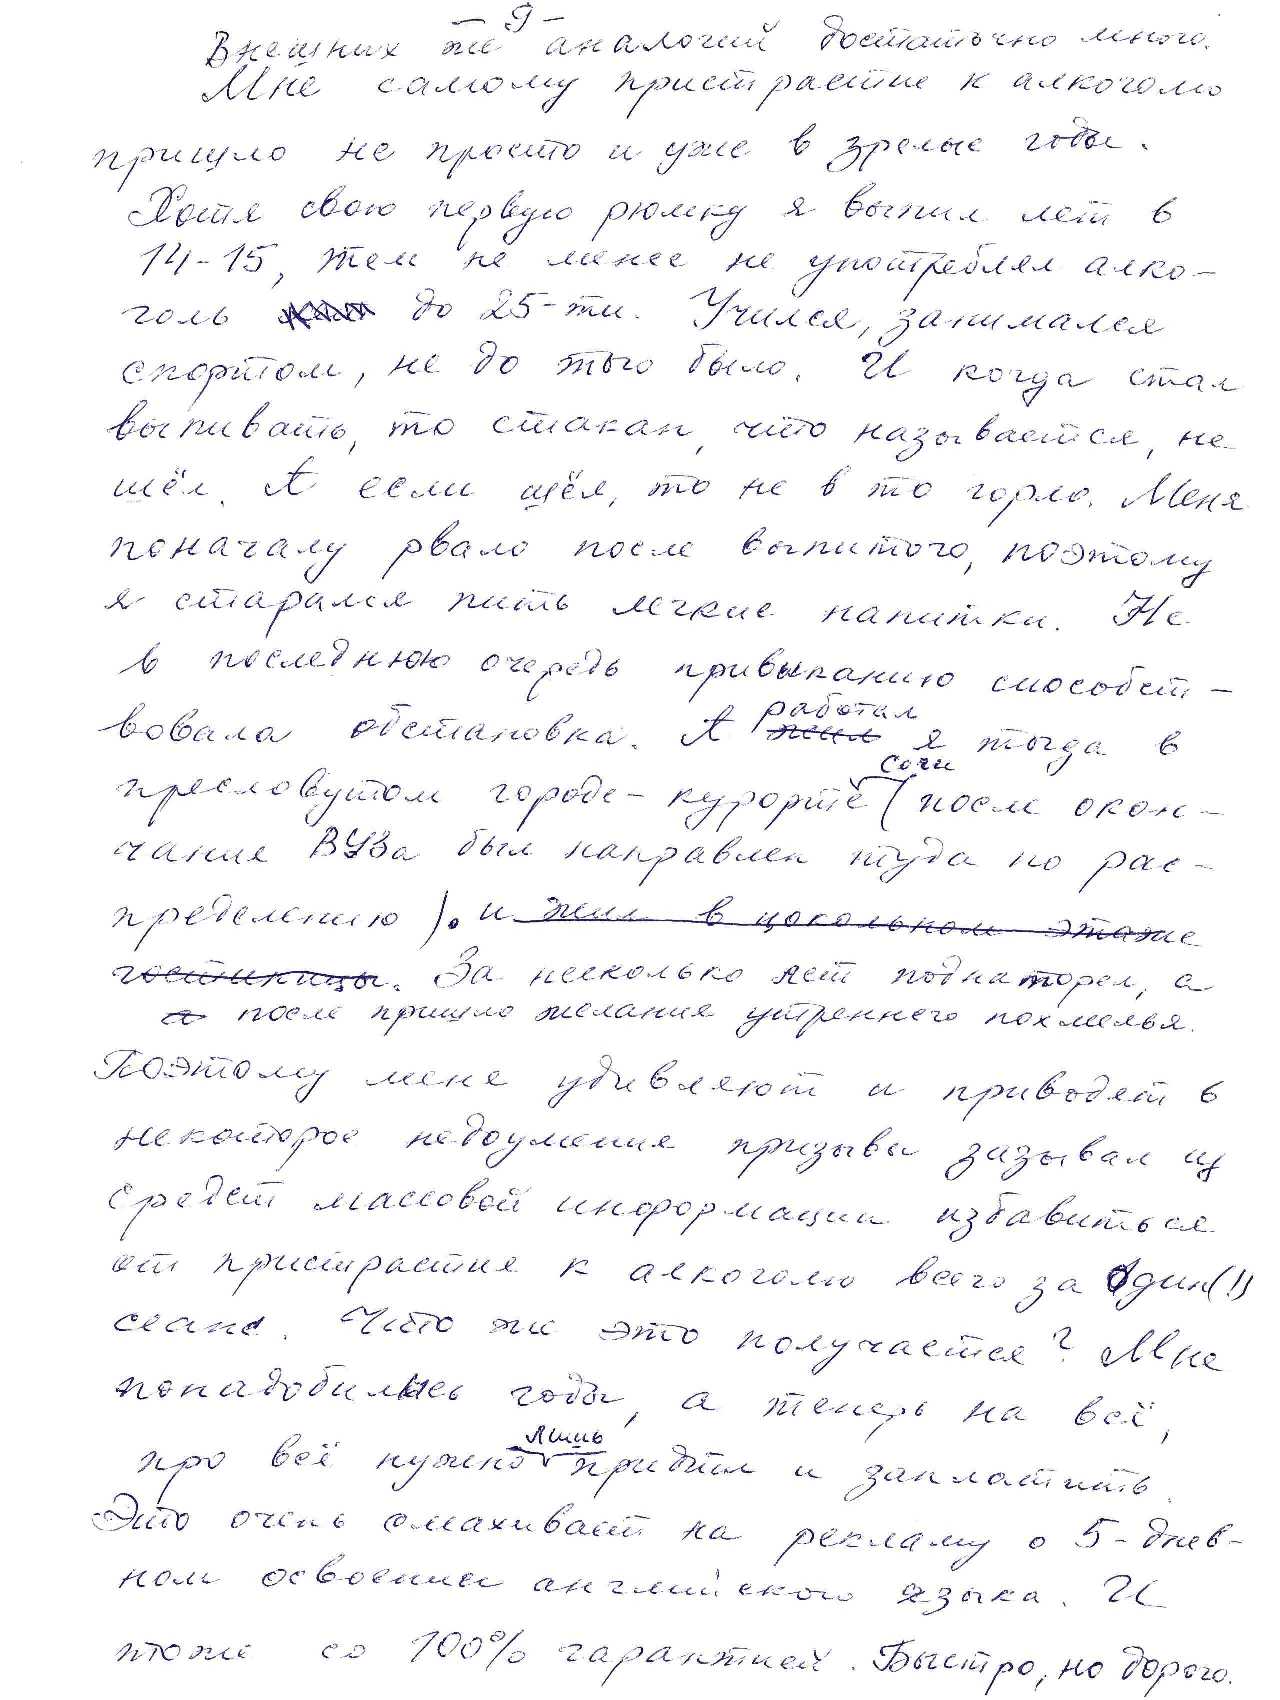 - 9 -
Внешних же аналогий достаточно много.
Мне самому пристрастие к алкоголю
пришло не просто и уже в зрелые годы.
Хотя свою первую рюмку я выпил лет в
14-15, тем не менее не употреблял алко-
голь до 25-ти. Учился, занимался
спортом, не до того было. И когда стал
выпивать, то стакан, что называется, не
шёл. А если шёл, то не в то горло. Меня
поначалу рвало после выпитого, поэтому
я старался пить легкие напитки. Не
в последнюю очередь привыканию способст-
вовала обстановка. А жил я тогда в
работал
Сочи
пресловутом городе-курорте (после окон-
чания ВУЗа был направлен туда по рас-
пределению). и жил в цокольном этаже
гостиницы. За несколько лет поднаторел, а
а после пришло желание утреннего похмелья.
Поэтому меня удивляют и приводят в
некоторое недоумение призывы зазывал из
средств массовой информации избавиться
от пристрастия к алкоголю всего за один(!)
сеанс. Что же это получается? Мне
понадобились годы, а теперь на всё,
лишь
про всё нужно прийти и заплатить.
Это очень смахивает на рекламу о 5-днев-
ном освоении английского языка. И
тоже со 100% гарантией. Быстро, но дорого.